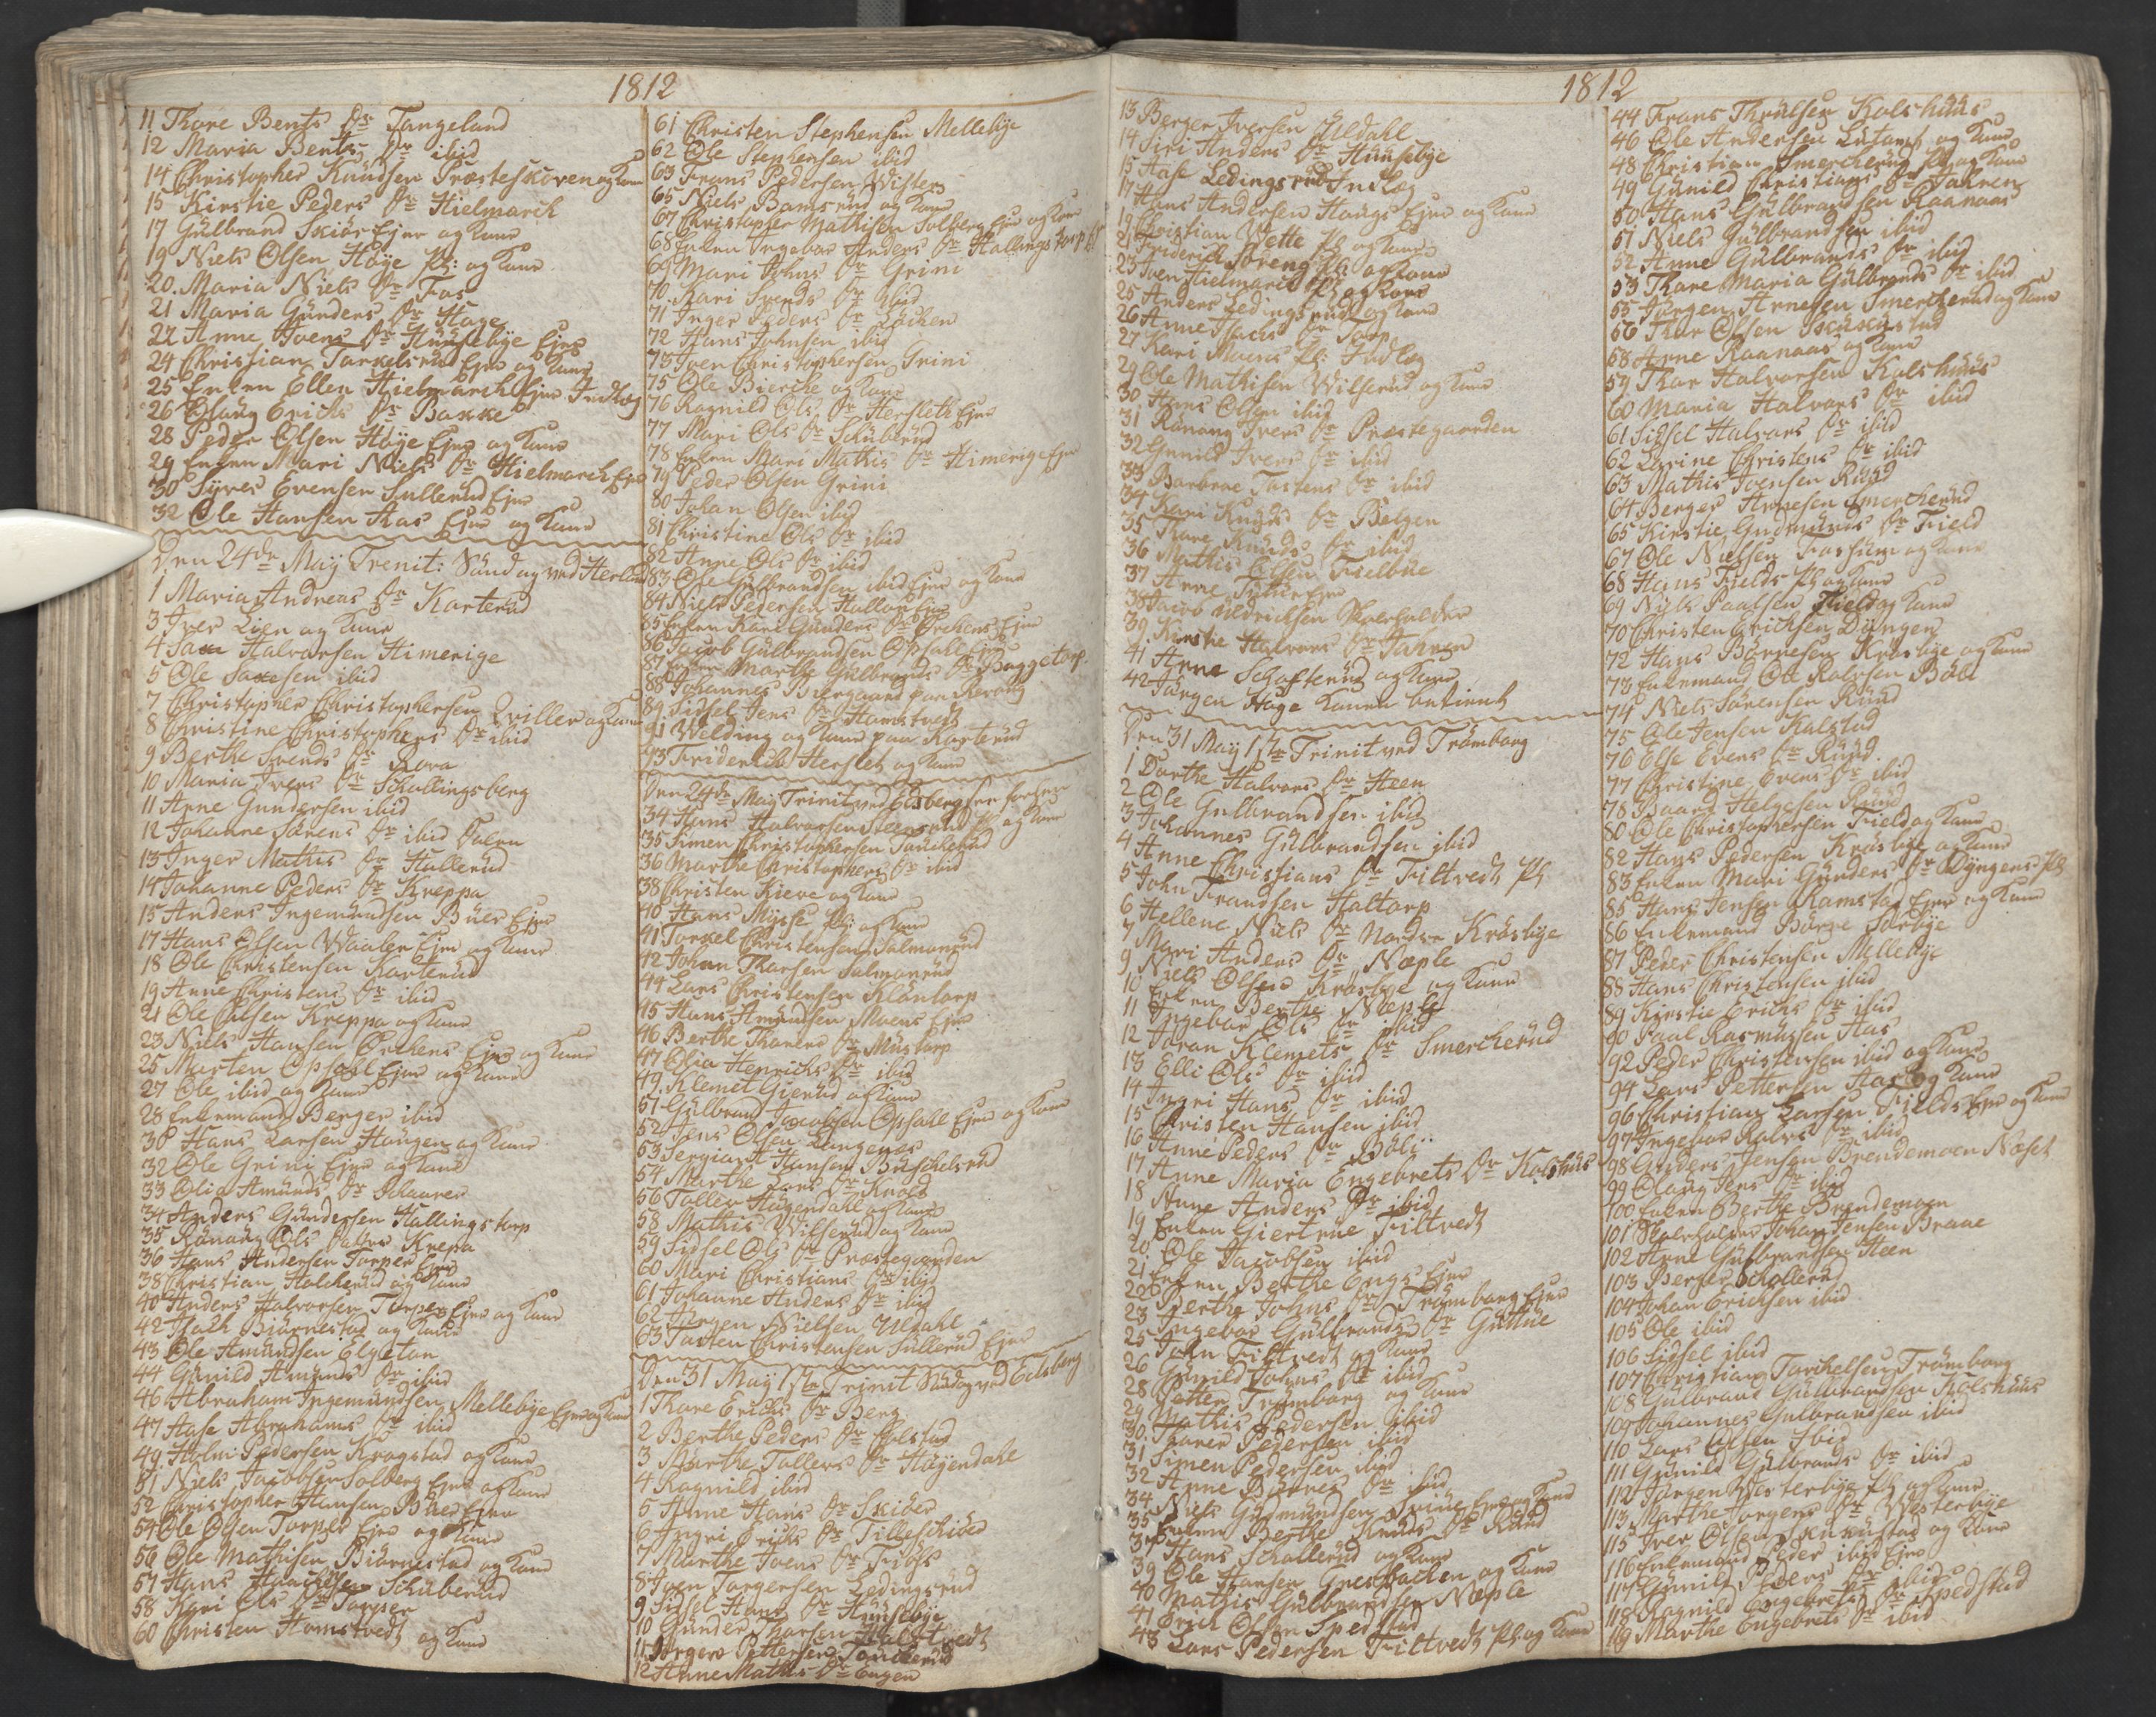 1812
11 Thore Bents Dr Tangeland
12 Maria Bents Dr ibid
14 Christopher Knudsen Træsteskoven og Kone
15 Kirstie Peders Dr Hielmarck
17 Gulbrand Skiør Ejer og Kone
19 Niels Olsen Høye Pl: og Kone
20. Maria Niels Dr Fos
21 Maria Gunders Dr Hage
22 Anne Ivers Dr Huusebye Ejer
24 Christian Torkelsrud Ejer og Kone
25 Enken Ellen Hielmarck Ejer Indlæg
26 Olaug Erichs Dr Bakke
28 Peder Olsen Høye Ejer og Kone
29 Enken Mari Niels Dr Hielmarck Ejer
30 Syver Evensen Sullerud Ejer
32 Ole Hansen Aas Ejer og Kone
Den 24de May Trenit: Søndag ved Herland
1 Maria Andreas Dr Karterud
3 Iver Lien og Kone
4 Saxe Halvorsen Himerige
5 Ole Saxesen ibid
7 Christopher Christophersen Qviller og Kone
8 Christine Christophers Dr ibid
9 Berthe Svends Dr Kova
10 Maria Ivers Dr Schallingsberg
11 Arne Gundersen ibid
12 Johanne Sørens Dr ibid
13 Inger Mathis Dr Hallerud
14 Johanne Peders Dr Kreppa
15 Anders Ingemundsen Buer Ejer
17 Hans Olsen Waaler Ejer og Kone
18 Ole Christensen Karterud
19 Anne Christens Dr ibid
21 Ole Olsen Kreppa og Kone
23 Niels Hansen Ørekens Ejer og Kone
25 Morten Opsahl Ejer og Kone
27 Ole ibid og Kone
28 Enkemand Berger ibid
30 Hans Larsen Haugen og Kone
32 Ole Grini Ejer og Kone
33 Olia Amunds Dr Schaarer
34 Anders Gundersen Hallingstorp
35 Ranaug Ols Datter Krepa
36 Hans Andersen Torper Ejer
38 Christian Halckerud og Kone
40 Anders Halvorsen Torper Ejer og Kone
42 Isach Biørnestad og Kone
43 Ole Amundsen Elgetun
44 Gunild Amunds Dr ibid
46 Abraham Ingemundsen Mellebye Ejer og Kone
47 Aase Abrahams Dr ibid
49. Holm Pedersen Kragstad og Kone
51 Niels Jacobsen Solberg Ejer og Kone
52 Christopher Hansen Buer Ejer
54 Ole Olsen Torper Ejer og Kone
56 Ole Mathisen Biørnestad og Kone
57 Hans Haachensen Schuberud
58 Kari Ols Dr Torper
60 Christen Homstvedt og Kone
61 Christen Stephensen Mellebye
62 Ole Stephensen ibid
63 Frans Pedersen Wister
65 Niels Bamsrud og Kone
67 Christopher Mathisen Solberg Ejer og Kone
68 Enken Ingebor Anders Dr Hallingstorp
69 Mari Johns Dr Grini
70. Kari Svends Dr ibid
71 Inger Peders Dr Løcken
72 Hans Johnsen ibid
73 Iver Christophersen Grini
75 Ole Biercke og Kone
76 Ragnild Ols Dr Hersleth Ejer
77 Mari Ols Dr Schuberud
78 Enken Mari Mathis Dr Himerige Ejer
79 Peder Olsen Grini
80 Johan Olsen ibid
81 Christine Ols Dr ibid
82 Anne Ols Dr ibid
83 Ole Gulbrandsen ibid Ejer og Kone
84 Niels Pedersen Hallon Ejer
85 Enken Kari Gunders Dr Ørekens Ejer
86 Jacob Gulbrandsen Opsahl Ejer
87 Enken Marthe Gulbrands Dr Baggetorp
88 Johannes Biergaard paa Korsæg
89 Sidsel Jens Dr Homstvedt
91 Welding og Kone paa Karterud
93 Friderich Hersleth og Kone
Den 24de May Trinit ved Edsberg see forhen
34 Hans Halvorsen Steensrud Pl og Kone
35 Simen Christophersen Tonekerud
36 Marthe Christophers Dr ibid
38 Christen Kiere og Kone
40 Hans Mysse Pl: og Kone
41 Torkel Christensen Salmonrud
42 Johan Thorsen Salmonrud
44 Lars Christensen Klöntorp
45 Hans Amundsen Moens Ejer
46 Berthe Thorers Dr Mustorp
47 Olia Henrichs Dr ibid
49. Klemet Gierud og Kone
51 Gulbrand Jacobsen Opsahl Ejer og Kone
52 Jens Olsen Langenes
53 Sergiant Hansen Buschelsrud
54 Marthe Lars Dr Knold
56 Tollev Høgendahl og Kone
58 Mathis Wilserud og Kone
59 Sidsel Ols Dr Præstegaarden
60 Mari Christians Dr ibid
61 Johanne Anders Dr ibid
62 Jørgen Nielsen Uldahl
63 Tosten Christensen Sullerud Ejer
Den 31 May 1ste Trinit Søndag ved Edsberg
1 Thore Erichs Dr Berg
2 Berthe Peders Dr Folstad
3 Marthe Tollers Dr Høyendahl
4 Ragnild ibid
5 Anne Hans Dr Skiöer
6 Ingri Erichs Dr Tilleschiöer
7 Marthe Ivers Dr Friös
8 Iver Torgersen Ledingsrud
9 Sidsel Hans Dr Huusebye
10 Gunder Thorsen Halstvedt
11 Jørgen Pettersen Tonekerud
12 Anne Mathis Dr Engen
1812
13 Berger Iversen Uldahl
14 Siri Anders Dr Huusebye
15 Aase Ledingsrud Indlæg
17 Hans Andersen Haugs Ejer og Kone
19 Christian Wette Pl og Kone
21 Friderich Spreng Pl og Kone
23 Iver Hielmarck Pl og Kone
25 Anders Ledingsrud og Kone
26 Anne Isachs Dr Torp
27 Kari Moens Pl: Indlæg
29 Ole Mathisen Wilserud og Kone
30 Hans Olsen ibid
31 Ranaug Ivers Dr Præstegaarden
32 Gunild Ivers Dr ibid
33 Barbroe Tostens Dr ibid
34 Kari Knuds Dr Belgen
35 Thore Knuds Dr ibid
36 Mathis Olsen Fielbue
37 Arne Fusker Ejer
38 Jacob Uldrichsen Skoleholder
39. Kirstie Halvors Dr Jahren
41 Arne Schofterud og Kone
42 Jørgen Hage Konen betient
Den 31 May 1ste Trinit ved Trømborg
1 Dorthe Halvors Dr Heen
2 Ole Gulbrandsen ibid
3 Johannes Gulbrandsen ibid
4 Anne Christians Dr Filtvedt Pl
5 John Frandsen Haltorp
6 Hellene Niels Dr Nordre Kråsbye
7 Mari Anders Dr Næple
9 Niels Olsen Kråsbye og Kone
10 Enken Berthe Næple
11 Ingebor Ols Dr ibid
12 Joran Klemets Dr Smercherud
13 Elli Ols Dr ibid
14 Ingri Hans Dr ibid
15 Christen Hansen ibid
16 Anne Peders Dr Böli
17 Anne Maria Engebrets Dr Kolshus
18 Anne Anders Dr ibid
19 Enken Giertrue Filtvedt
20 Ole Jacobsen ibid
21 Enken Berthe Engs Ejer
22 Berthe Johns Dr Trømborg Ejer
23 Ingebor Gulbrands Dr Guttue
25 John Filtvedt og Kone
26 Gunild Johns Dr ibid
28 Petter Trømborg og Kone
29 Mathis Pedersen ibid
30 Thorer Pedersen ibid
31 Simen Pedersen ibid
32 Anne Peders Dr ibid
34 Niels Gudmundsen Ejer og Kone
35 Enken Berthe Knuds Dr Ruud
37 Hans Schollerud og Kone
39 Ole Hansen Gresbachen og Kone
40 Mathis Gulbrandsen Næple
41 Erich Olsen Spedstad
43 Lars Pedersen Filtvedt Pl. og Kone
1812
44 Frans Thrulsen Kolshuus
46 Ole Andersen Lutorp og Kone
48 Christian Smercherud Pl og Kone
49 Gunild Christians Dr Jahren
50 Hans Gulbrandsen Raanaas
51 Niels Gulbrandsen ibid
52 Anne Gulbrands Dr ibid
53 Thore Maria Gulbrands Dr ibid
55 Jørgen Arnesen Smercherud og Kone
56 Thor Olsen Skukustad
58 Arne Raanaas og Kone
59 Thor Halvorsen Kolshuus
60 Maria Halvors Dr ibid
61 Sidsel Halvors Dr ibid
62 Lavine Christens Dr ibid
63 Mathis Iversen Ruud
64 Berger Arnesen Smercherud
65 Kirstie Gudmunds Dr Field
67 Ole Nielsen Fossum og Kone
68 Hans Fields Pl og Kone
69 Niels Paalsen Field og Kone
70 Christen Erichsen Dyngen
72 Hans Børnesen Kråsbye og Kone
73 Enkemand Ole Rolvsen Böli
74 Niels Sørensen Ruud
75 Ole Jensen Kalstad
76 Else Evens Dr Ruud
77 Christine Evens Dr ibid
78 Baard Helgesen Ruud
80 Ole Christophersen Field og Kone
82 Hans Pedersen Kråsbye og Kone
83 Enken Mari Gunders Dr Dyngens Pl
85 Hans Jensen Ramstad Ejer og Kone
86 Enkemand Børge Sørbye
87 Peder Christensen Mellebye
88 Hans Christensen ibid
89 Kirstie Erichs Dr ibid
90 Paal Rasmussen Aas
92 Peder Christensen ibid og Kone
94 Lars Pettersen Aas og Kone
96 Christian Larsen Fields Ejer og Kone
97 Ingebor Rolvs Dr ibid
98 Gunders Jensen Brendemoen Næset
99 Olaug Jens Dr ibid
100 Enken Berthe Brendemoen
101 Skoleholder Johan Jensen Braae
102 Arne Gulbrandsen Heen
103 Berger Schollerud
104 Johan Erichsen ibid
105 Ole ibid
106 Sidsel ibid
107 Christian Torchelsen Trømborg
108 Gulbrand Gulbrandsen Kolshuus
109 Johannes Gulbrandsen ibid
110 Lars Olsen Ibid
111 Gunild Gulbrands Dr ibid
112 Jørgen Westerbye Pl og Kone
113 Marthe Jørgens Dr Westerbye
115 Iver Olsen Skukustad og Kone
116 Enkemand Peder ibid Ejer
117 Gunild Peders Dr ibid
118 Ragnild Engebrets Dr Spedstad
119 Marthe Engebrets Dr ibid